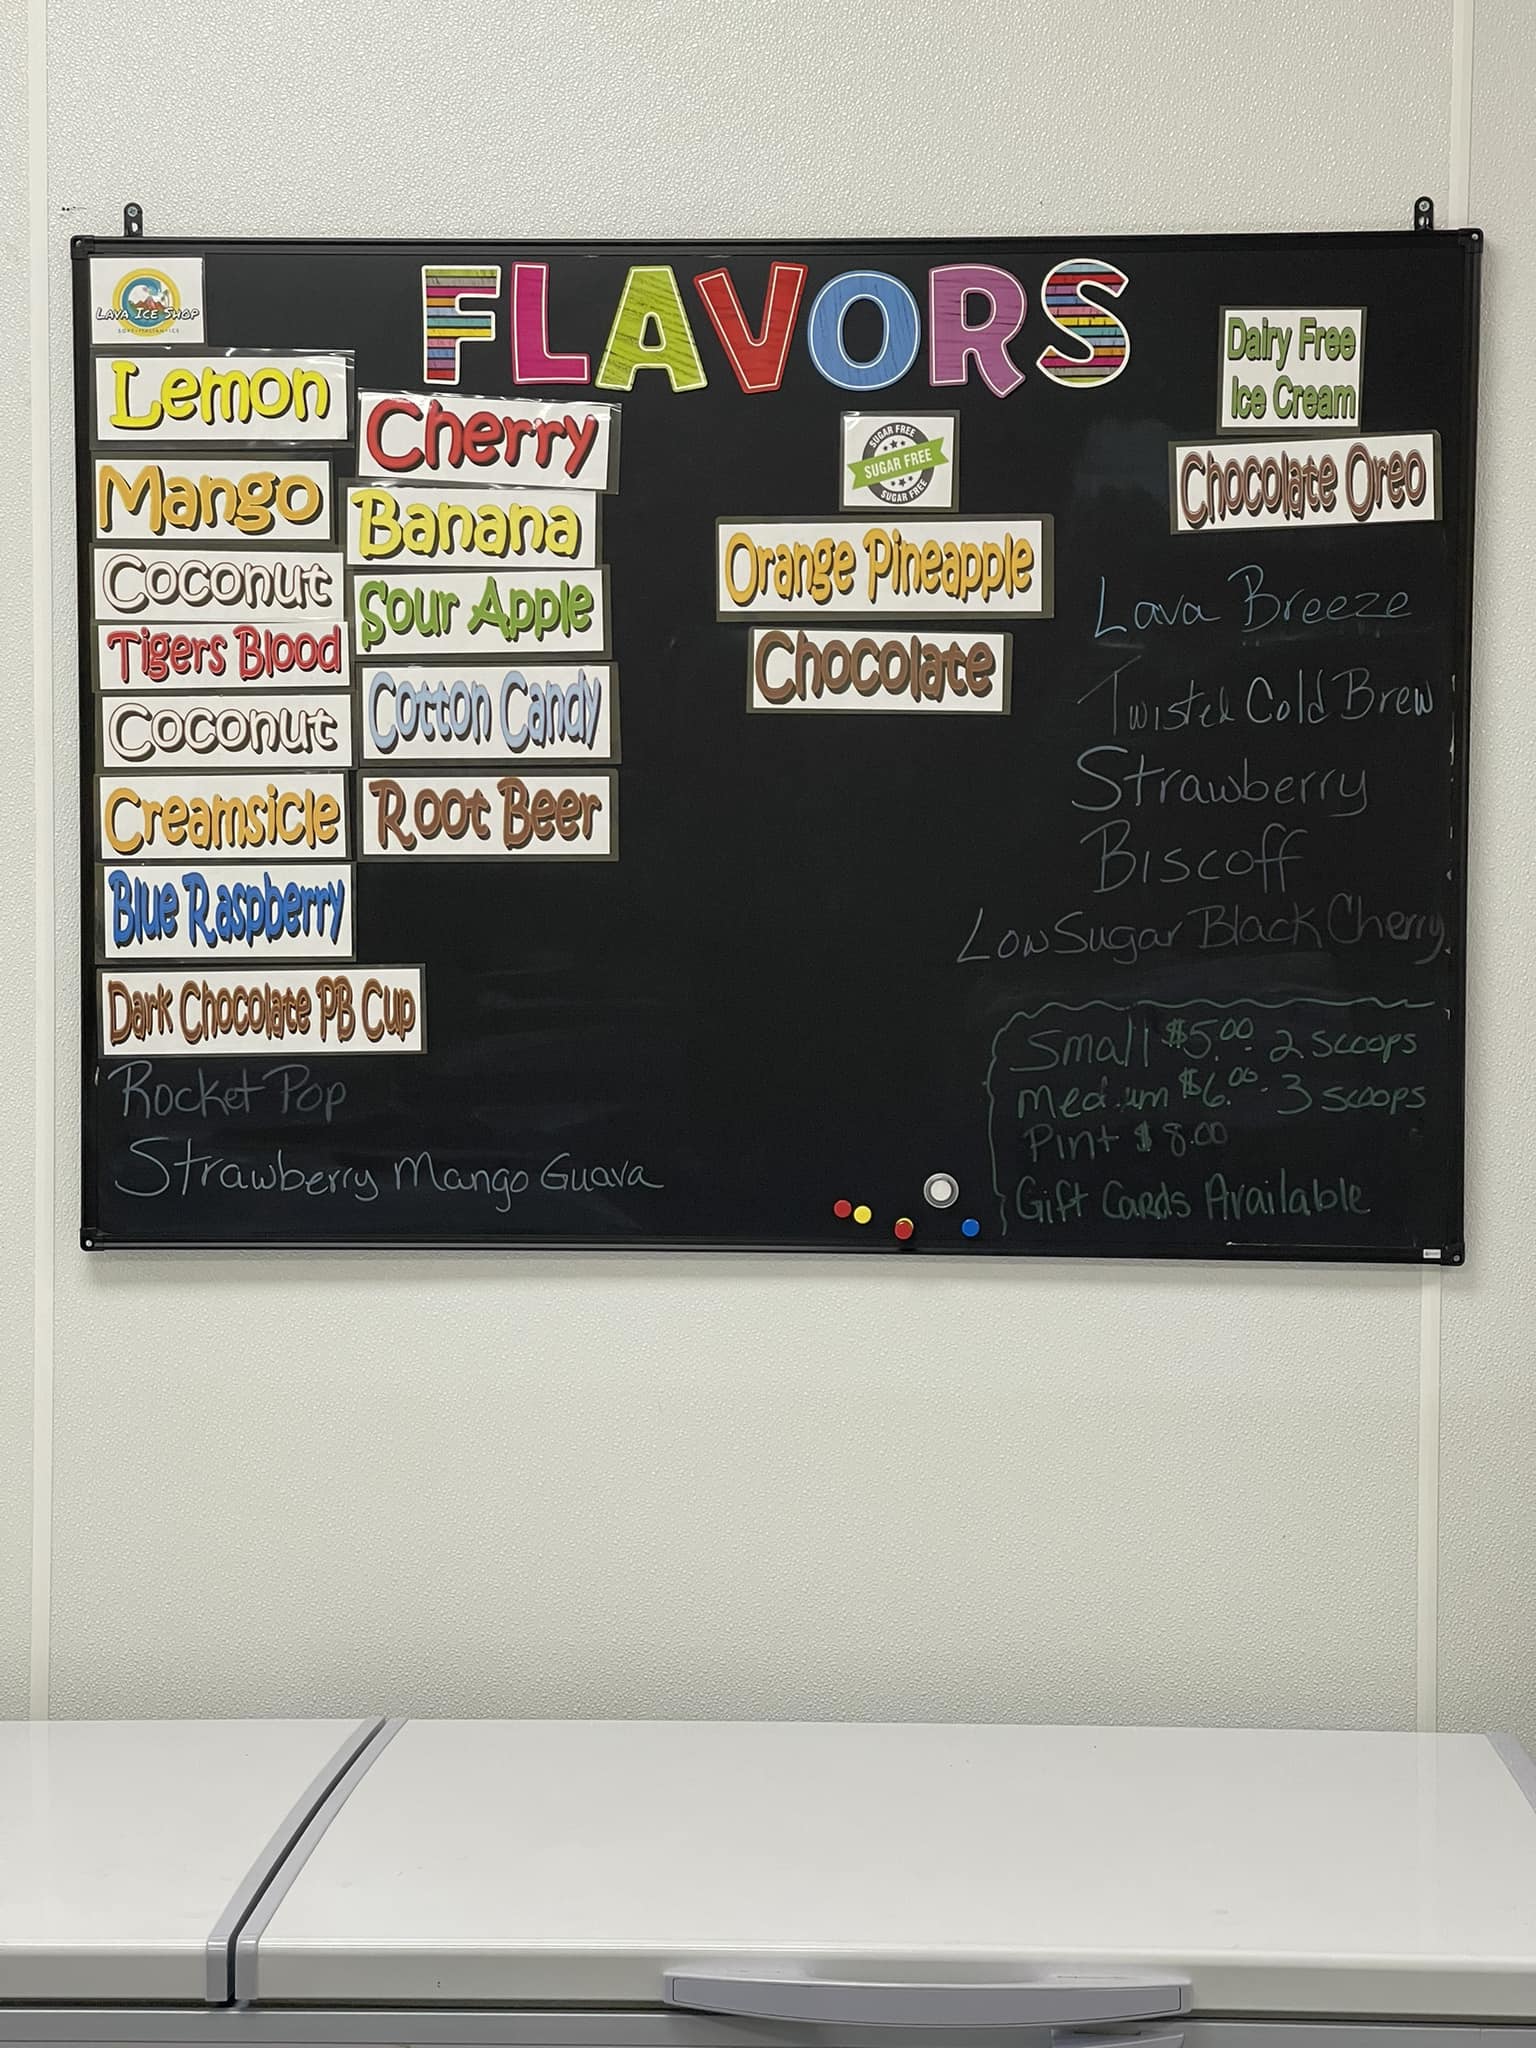 FLAVORS
LAVA ICE SHOP
Lemon
Mango
Coconut
Tigers Blood
Coconut
Creamsicle
Blue Raspberry
Dark Chocolate PB Cup
Rocket Pop
Strawberry Mango Guava
Cherry
Banana
Sour Apple
Cotton Candy
Root Beer
SUGAR FREE
SUGAR FREE
SUGAR FREE
Orange Pineapple
Chocolate
Dairy Free
Ice Cream
Chocolate Oreo
Lava Breeze
Twisted Cold Brew
Strawberry
Biscoff
Low Sugar Black Cherry
Small $5.00 2 scoops
Medium $6.00 - 3 scoops
Pint $8.00
Gift Cards Available